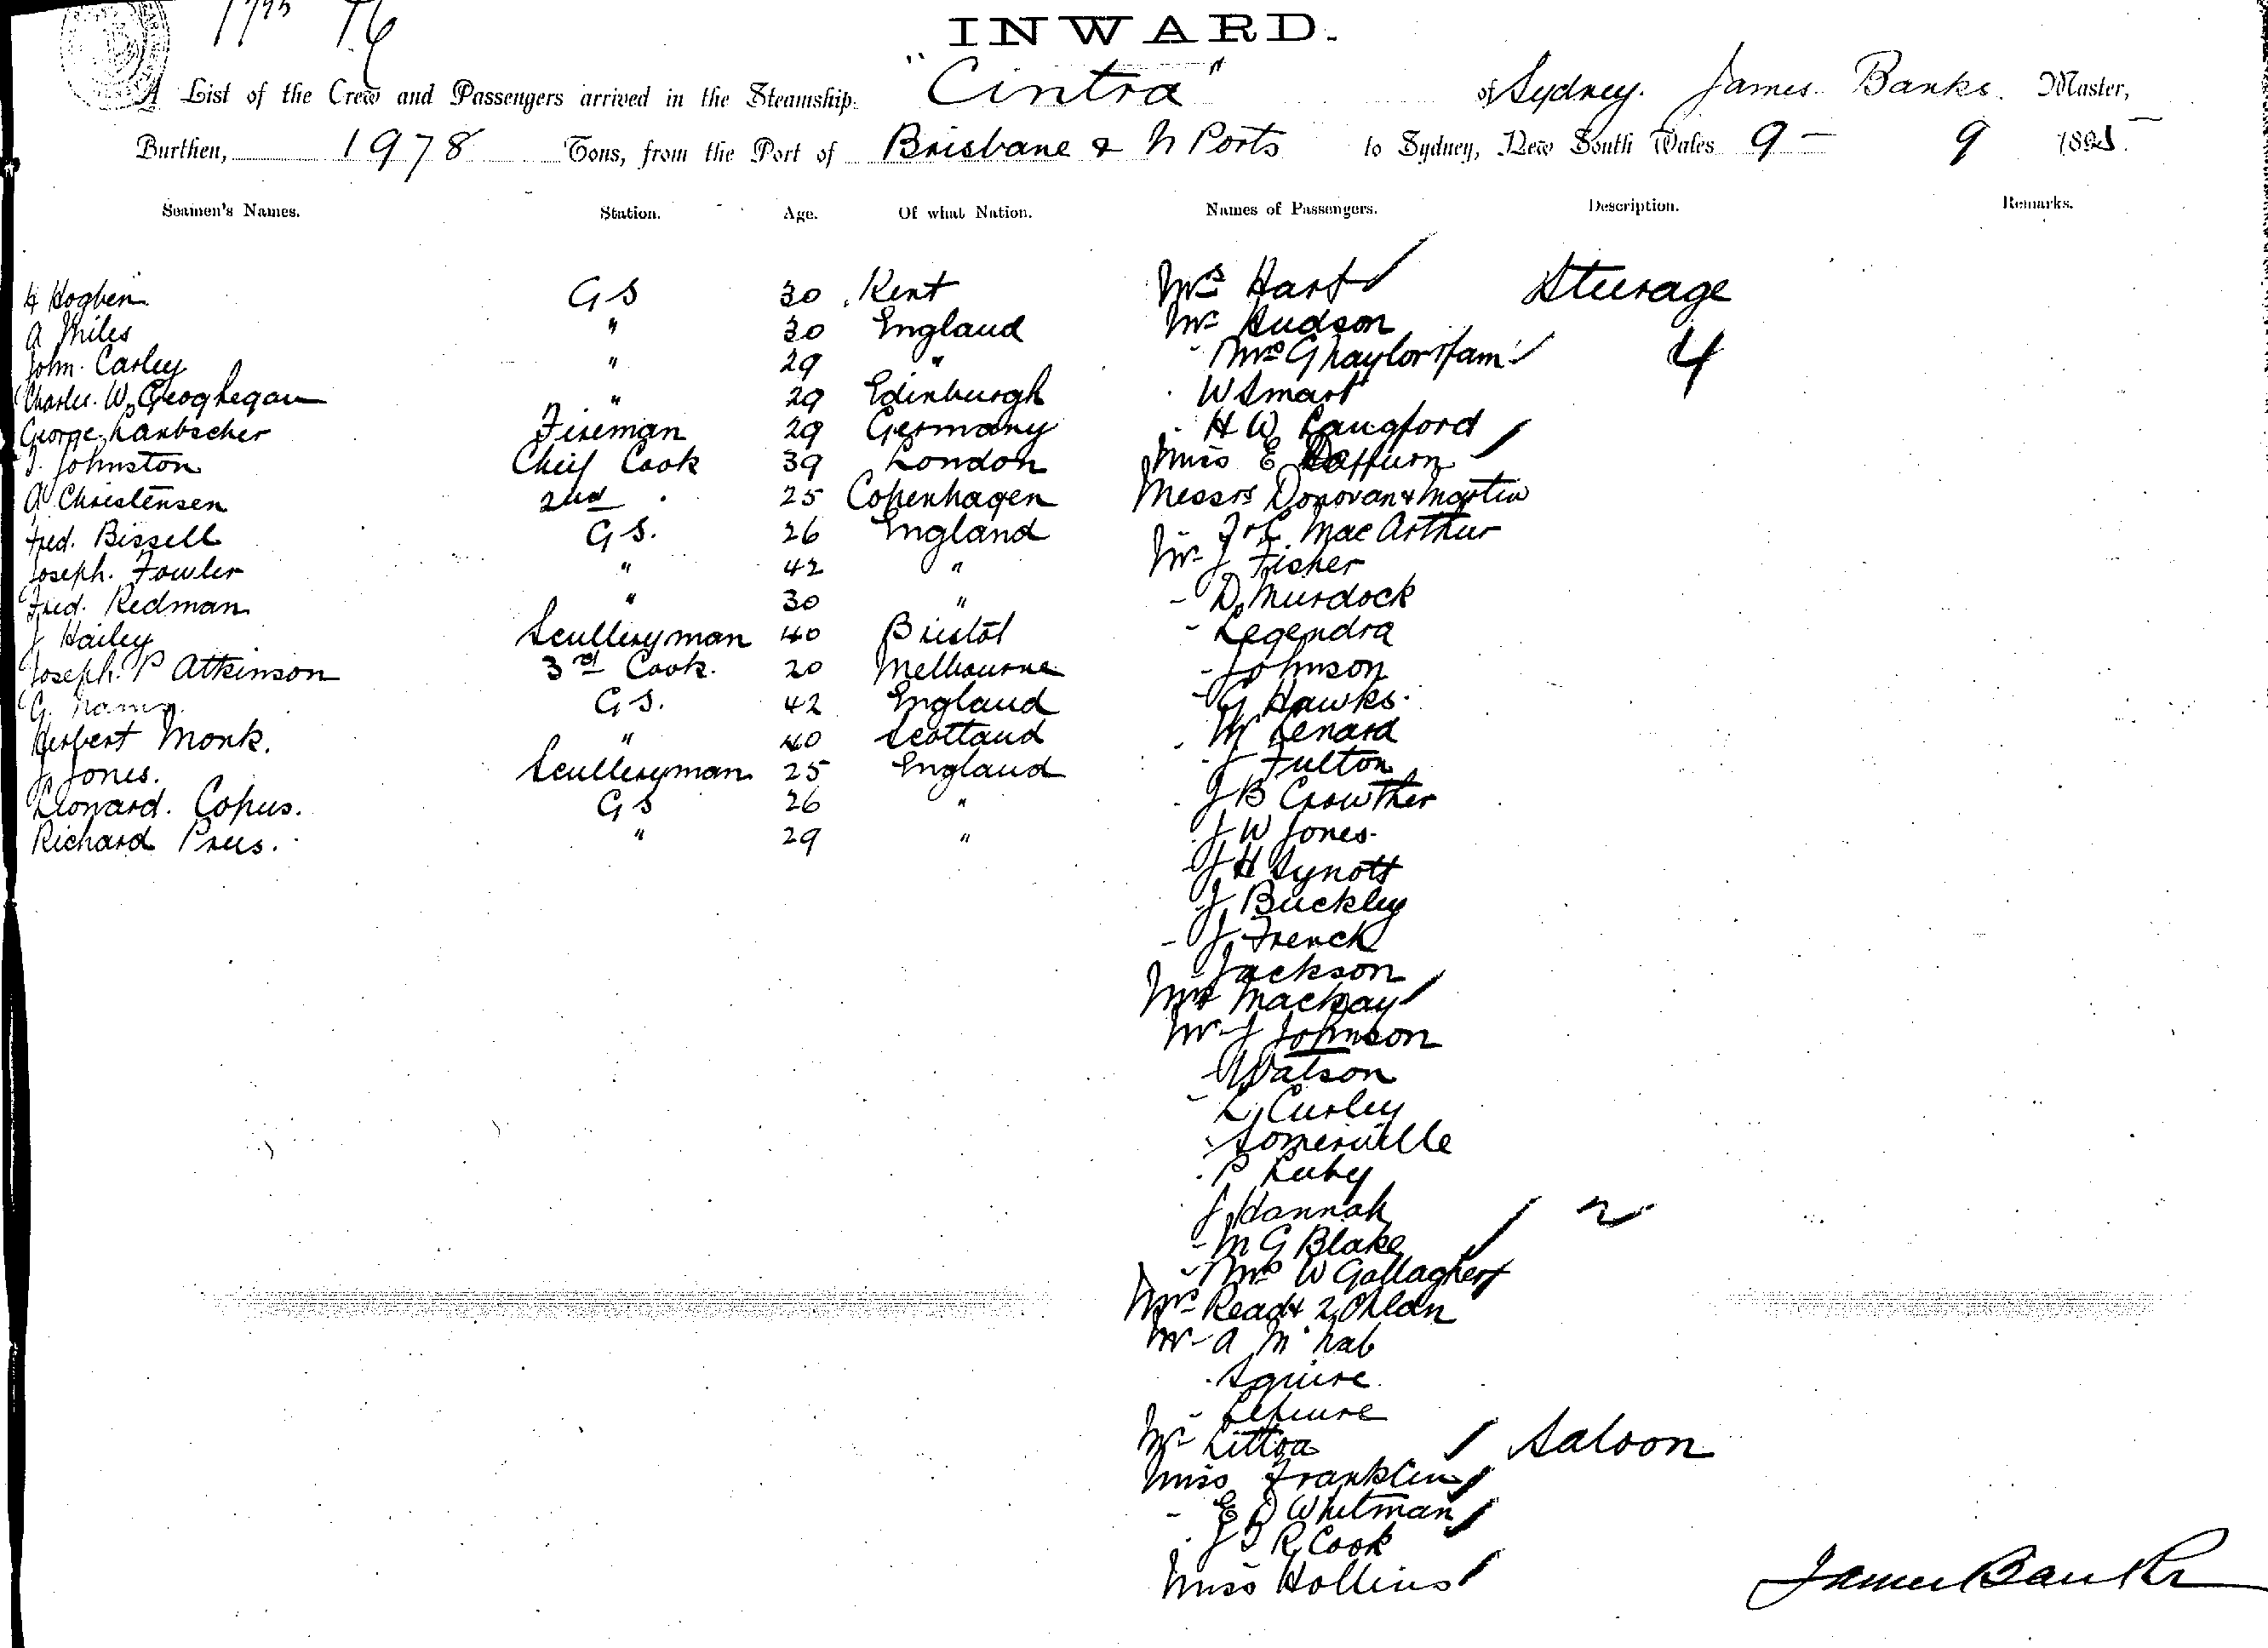 INWARD.
A List of the Crew and Passengers arrived in the Steamship "Cintra" of Sydney. James Banks. Master,
Burthen, 1978 Tons, from the Port of Brisbane & N Ports to Sydney, New South Wales 9 - 9 1895
Seamen's Names. Station. Age. Of what Nation. Names of Passengers. Description. Remarks.
H Hogben G S 30 Kent Mrs Hart Sturage
A Miles " 30 England Mr Hudson
John Carley " 29 " Mrs G Naylor & fam 4
Charles. W. Geoghegan " 29 Edinburgh W Smart
George Fireman 29 Germany H W Langford
Johnston Chief Cook 39 London Miss E
A Christensen 2nd 25 Copenhagen Messrs Donovan & Martin
Fred. Bissell G S. 26 England Mac Arthur
Joseph. Fowler " 42 " Mr J Fisher
Fred. Redman " 30 " D Murdock
J Hailey Sculleryman 40 Bristol Legendra
Joseph. P Atkinson 3rd Cook. 20 Melbourne Johnson
G. G S. 42 England G Hawks
Herbert Monk. " 40 Scotland M Lenard
J Jones. Scullery man 25 England J Fulton
Leonard. Copus. G S 26 " J B Crowther
Richard Prees. " 29 " J W Jones
J H Synott
J Buckley
J French
Jackson
Mrs Mackay
Mr J Johnson
Watson
L Curley
Somerville
P Luby
J Hannah 2
M G Blake
Mrs W Gallagher
Mrs Read & 2 Chldn
Mr A McNab
Squire
Lefeure
Mr Littoa Saloon
Miss Franklin
E D Whitman
J T R Cook
Miss Hollins
James Banks